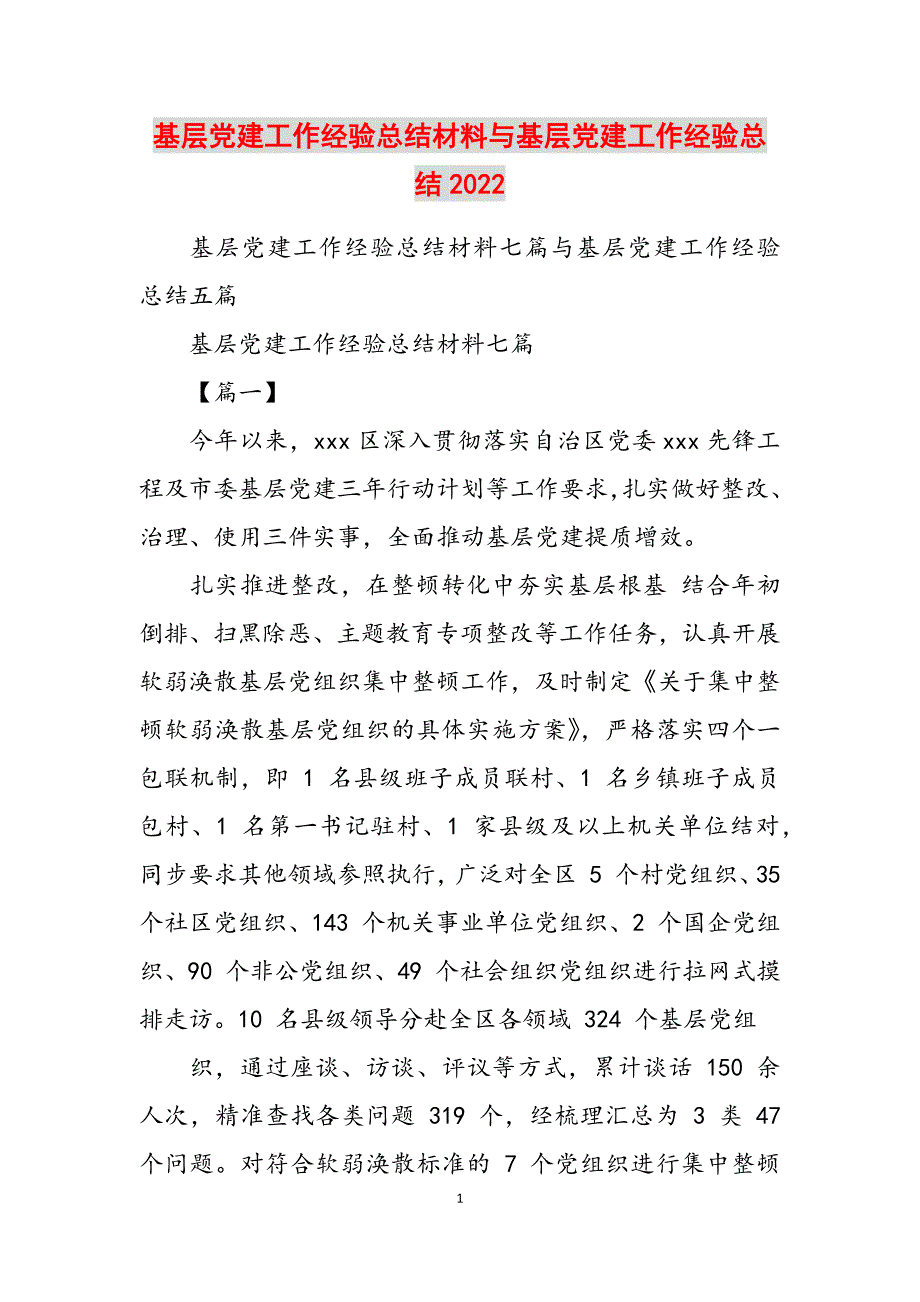 基层党建工作经验总结材料与基层党建工作经验总
结2022
基层党建工作经验总结材料七篇与基层党建工作经验
总结五篇
基层党建工作经验总结材料七篇
【篇一】
今年以来，xxx 区深入贯彻落实自治区党委 xxx 先锋工
程及市委基层党建三年行动计划等工作要求，扎实做好整改、
治理、使用三件实事，全面推动基层党建提质增效。
扎实推进整改，在整顿转化中夯实基层根基 结合年初
倒排、扫黑除恶、主题教育专项整改等工作任务，认真开展
软弱涣散基层党组织集中整顿工作，及时制定《关于集中整
顿软弱涣散基层党组织的具体实施方案》，严格落实四个一
包联机制，即 1 名县级班子成员联村、1 名乡镇班子成员
包村、1 名第一书记驻村、1 家县级及以上机关单位结对，
同步要求其他领域参照执行，广泛对全区 5 个村党组织、35
个社区党组织、143 个机关事业单位党组织、2 个国企党组
织、90 个非公党组织、49 个社会组织党组织进行拉网式摸
排走访。10 名县级领导分赴全区各领域 324 个基层党组
织，通过座谈、访谈、评议等方式，累计谈话 150 余
人次，精准查找各类问题 319 个，经梳理汇总为 3 类 47
个问题。对符合软弱涣散标准的 7 个党组织进行集中整顿
1